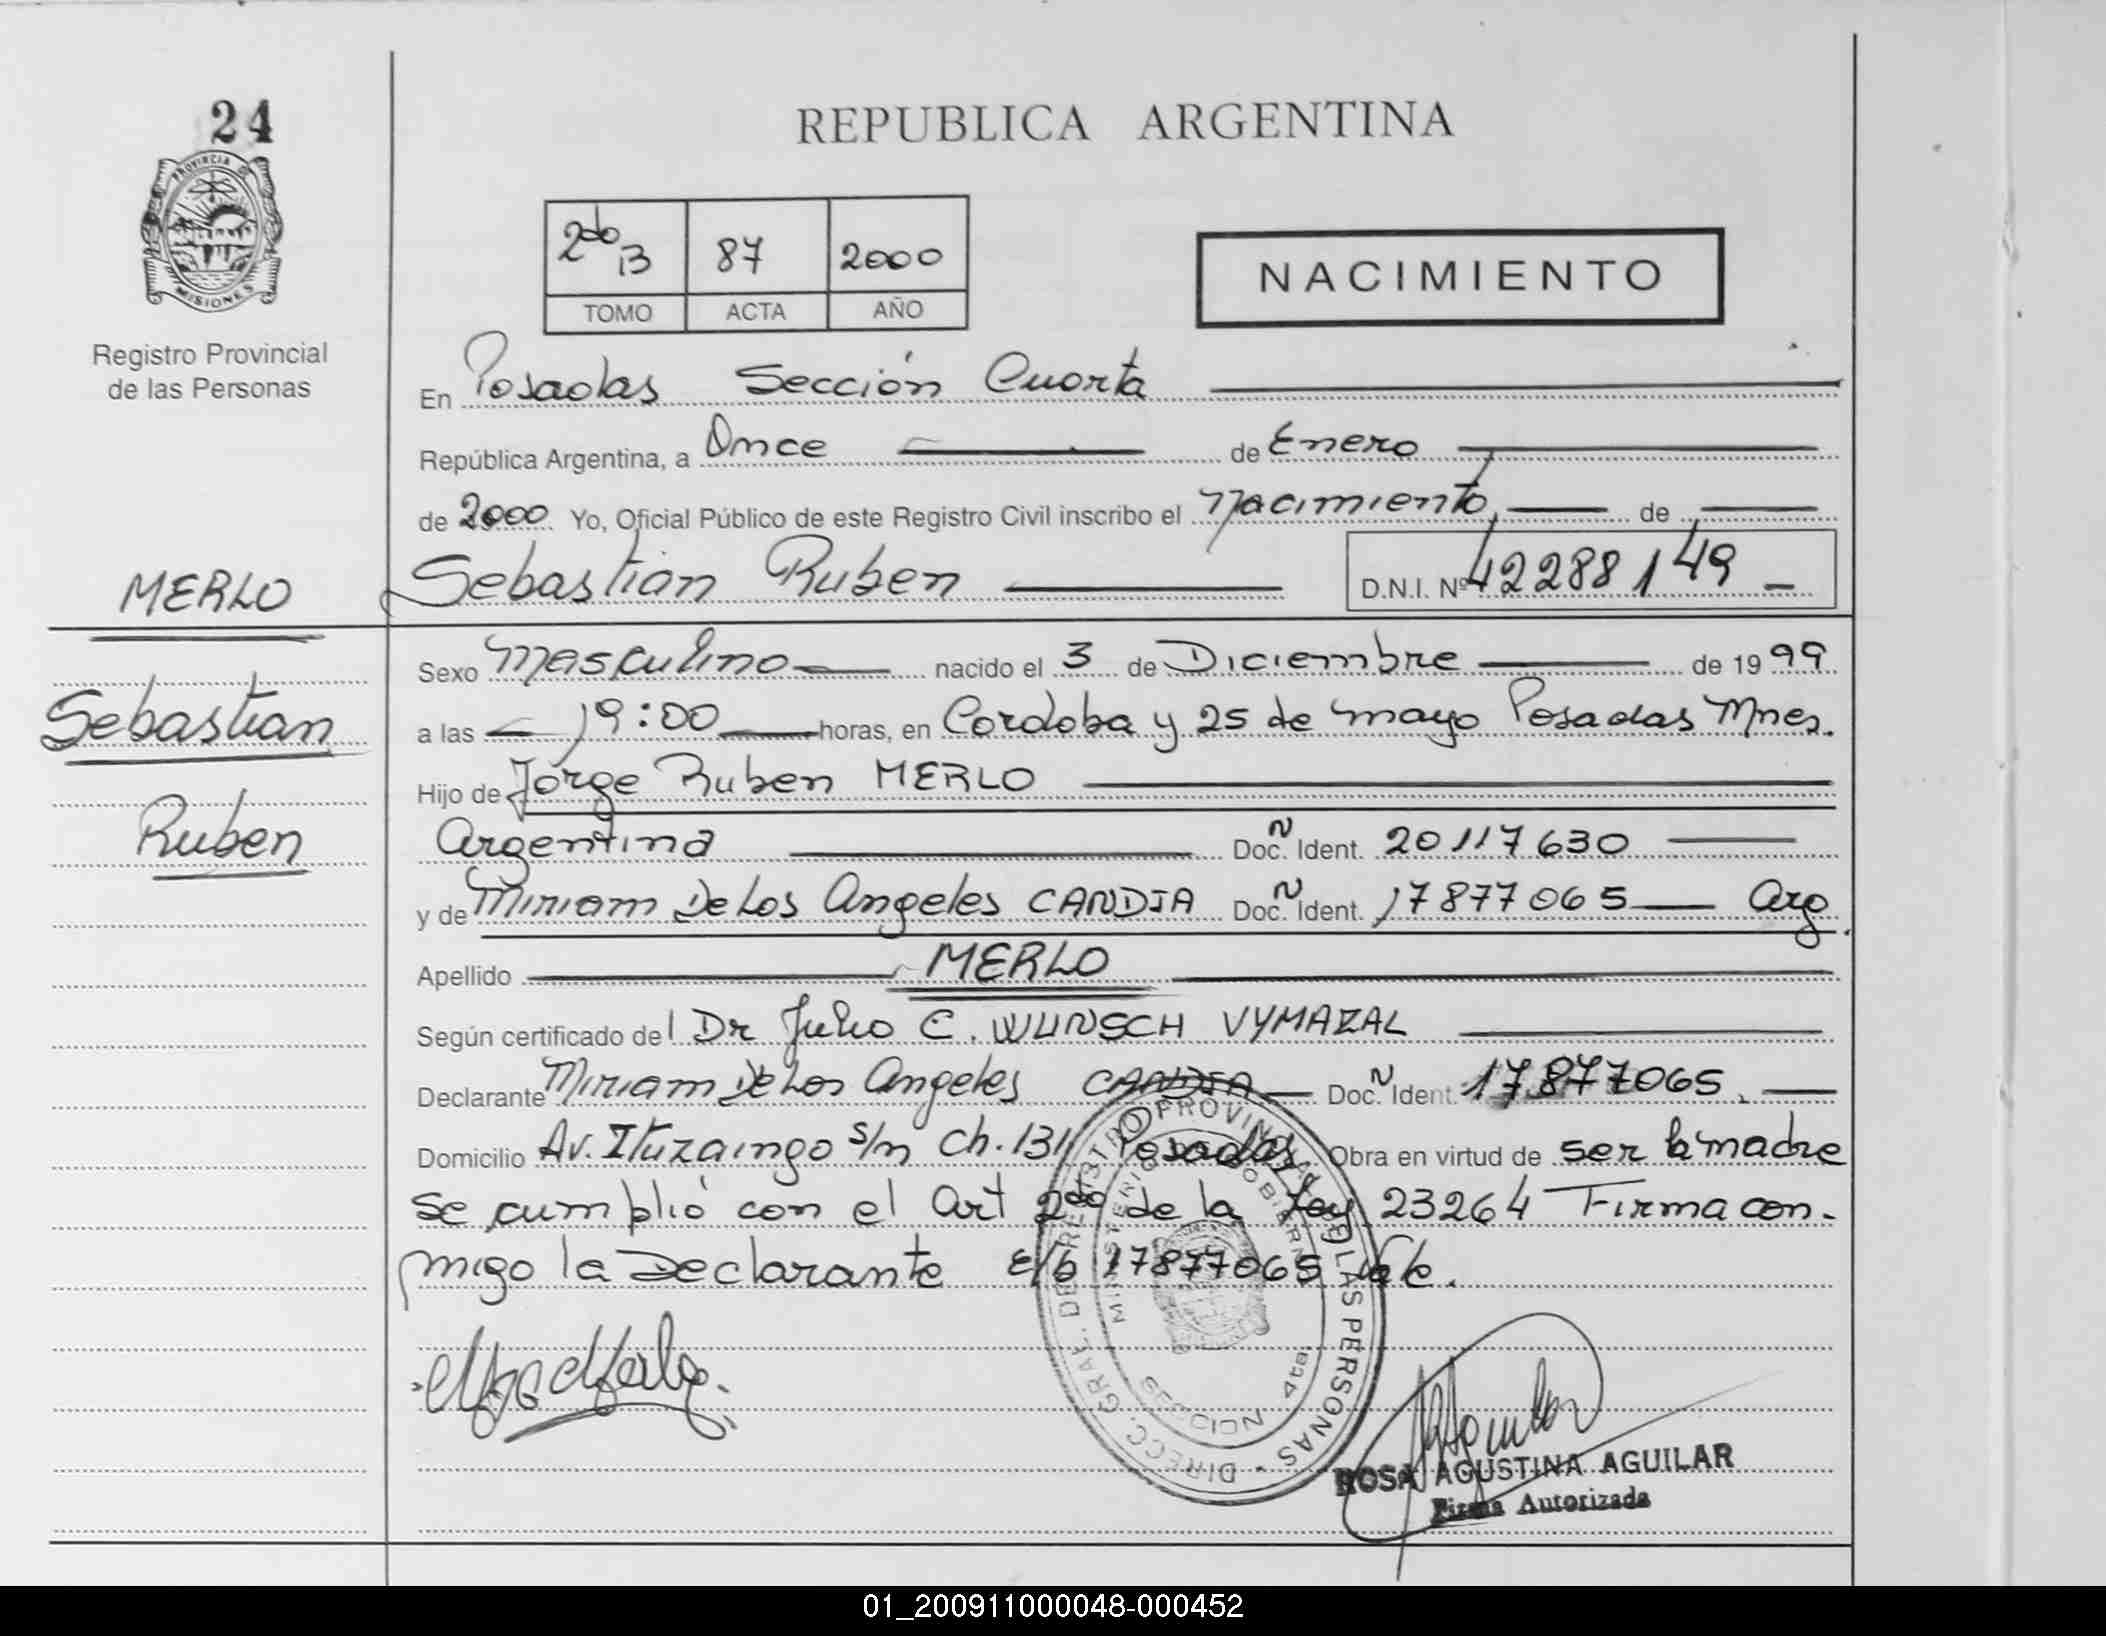 24
PROVINCIA DE
MISIONES
Registro Provincial
de las Personas
REPUBLICA ARGENTINA
2do B 87 2000
TOMO ACTA AÑO
NACIMIENTO
En Posadas Sección Cuarta
República Argentina, a Once de Enero
de 2000 Yo, Oficial Público de este Registro Civil inscribo el Nacimiento, de
MERLO
Sebastian Ruben D.N.I. Nº 42288149
Sebastian
Ruben
Sexo Masculino nacido el 3 de Diciembre de 1999
a las 19:00 horas, en Cordoba y 25 de mayo Posadas Mnes.
Hijo de Jorge Ruben MERLO
Argentina Doc. Ident. 20117630
y de Miriam De Los Angeles CANDIA Doc. Ident. 17877065 Arg.
Apellido MERLO
Según certificado del Dr Julio C. WUNSCH VYMAZAL
Declarante Miriam De Los Angeles CANDIA Doc. Ident. 17.877065.
Domicilio Av. Ituzaingo s/n Ch. 131 Posadas Obra en virtud de ser la madre
se cumplió con el Art 2do de la Ley 23264 Firma con-
migo la Declarante E/b 17877065 Vale.
DIRECC. GRAL. DE REGISTRO PROVINCIAL DE LAS PERSONAS
MINISTERIO DE GOBIERNO
SECCION 4ta.
ROSA AGUSTINA AGUILAR
Firma Autorizada
01_200911000048-000452